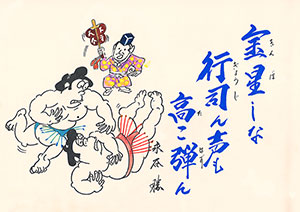 金星しな
行司ん声も
高こ弾ん